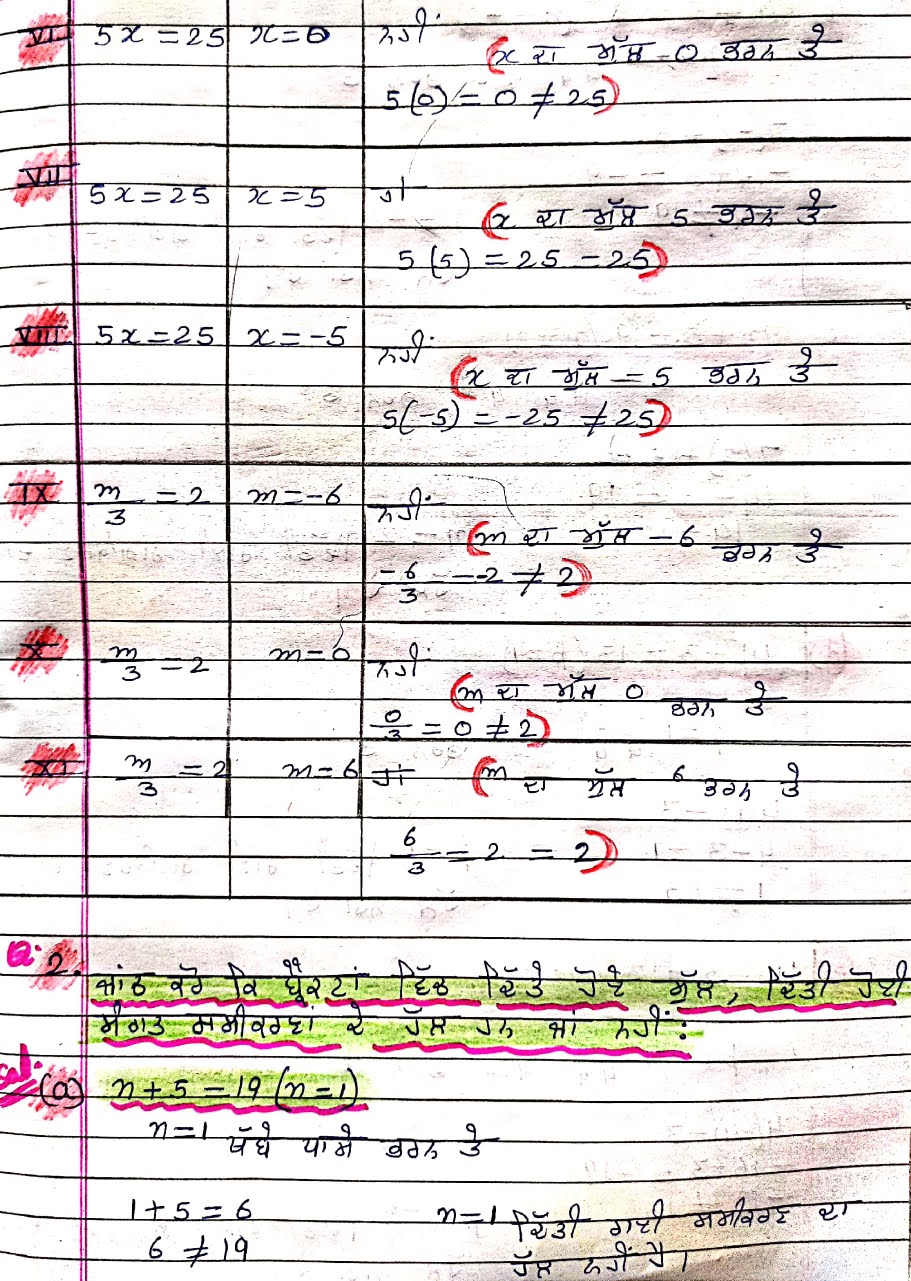 VI 5x = 25 x = 0 ਨਹੀਂ
(x ਦਾ ਮੁੱਲ 0 ਭਰਨ ਤੇ
5(0) = 0 ≠ 25)
VII 5x = 25 x = 5 ਹਾਂ
(x ਦਾ ਮੁੱਲ 5 ਭਰਨ ਤੇ
5(5) = 25 = 25)
VIII 5x = 25 x = -5 ਨਹੀਂ
(x ਦਾ ਮੁੱਲ -5 ਭਰਨ ਤੇ
5(-5) = -25 ≠ 25)
IX m/3 = 2 m = -6 ਨਹੀਂ
(m ਦਾ ਮੁੱਲ -6 ਭਰਨ ਤੇ
-6/3 = -2 ≠ 2)
X m/3 = 2 m = 0 ਨਹੀਂ
(m ਦਾ ਮੁੱਲ 0 ਭਰਨ ਤੇ
0/3 = 0 ≠ 2)
XI m/3 = 2 m = 6 ਹਾਂ (m ਦਾ ਮੁੱਲ 6 ਭਰਨ ਤੇ
6/3 = 2 = 2)
Q. 2. ਜਾਂਚ ਕਰੋ ਕਿ ਬ੍ਰੈਕਟਾਂ ਵਿੱਚ ਦਿੱਤੇ ਹੋਏ ਮੁੱਲ, ਦਿੱਤੀ ਹੋਈ
ਸੰਗਤ ਸਮੀਕਰਣਾਂ ਦੇ ਹੱਲ ਹਨ ਜਾਂ ਨਹੀਂ:
Sol. (a) n + 5 = 19 (n = 1)
n = 1 ਖੱਬੇ ਪਾਸੇ ਭਰਨ ਤੇ
1 + 5 = 6 n = 1 ਦਿੱਤੀ ਗਈ ਸਮੀਕਰਣ ਦਾ
6 ≠ 19 ਹੱਲ ਨਹੀਂ ਹੈ।